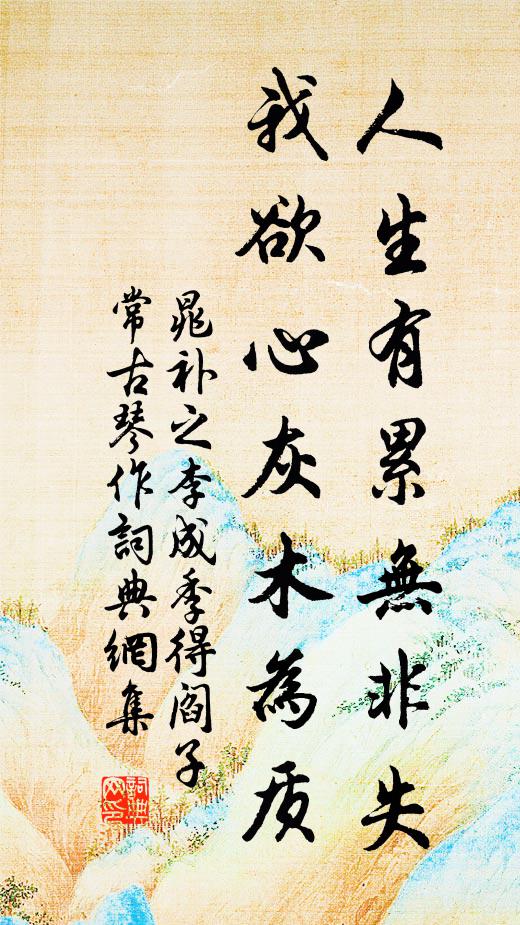 人生有累無非失
我欲心灰木為质
晁补之李成季得阎子
常古琴作詞典網集
詞典网印